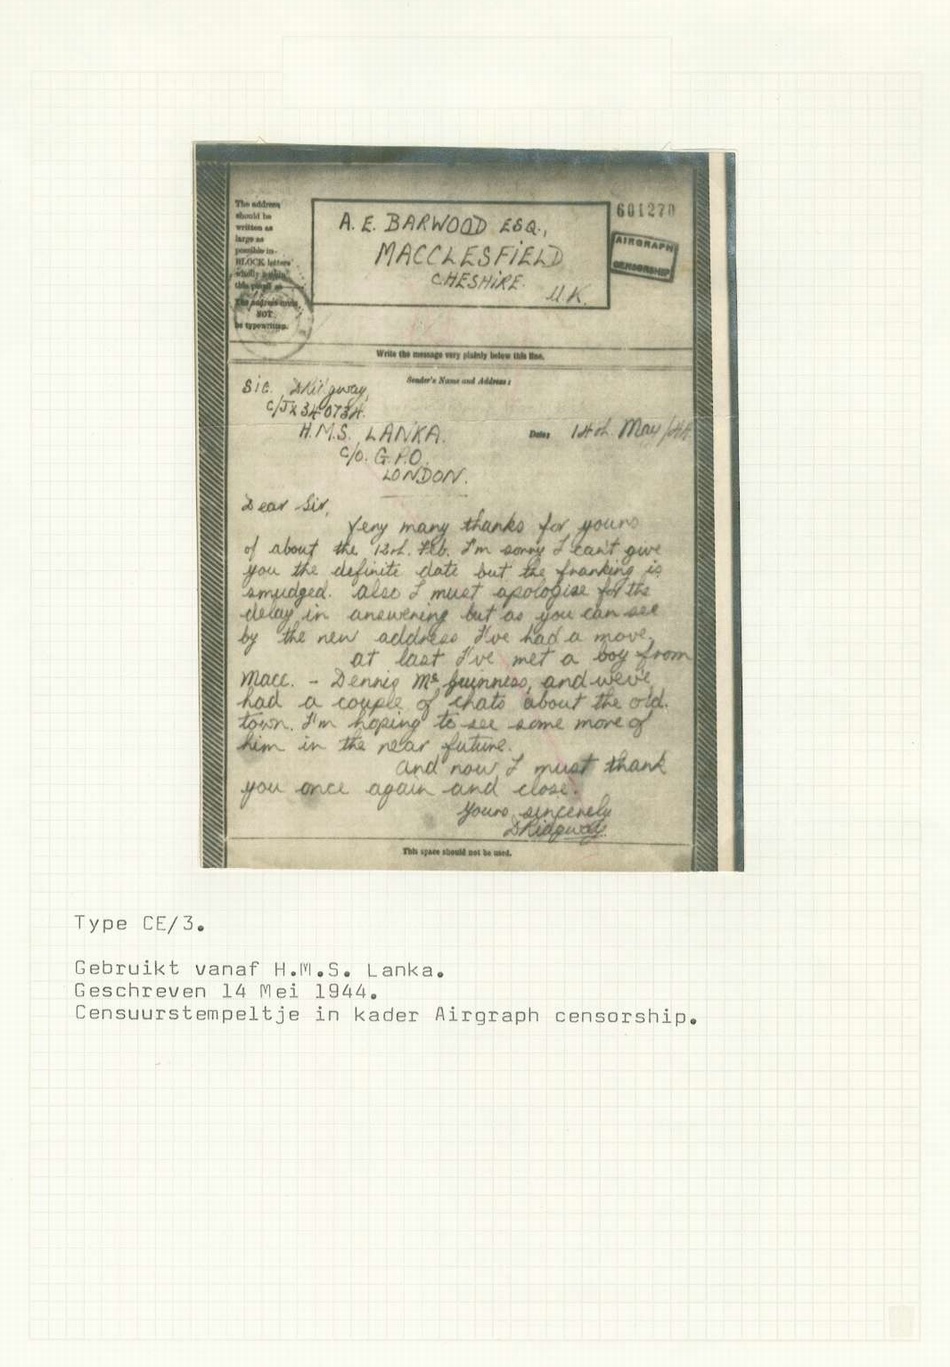 The address
should be
written as
large as
possible in
BLOCK letters
wholly within
this panel
The address
NOT
be typewritten.
A. E. BARWOOD ESQ.,
MACCLESFIELD
CHESHIRE.
U.K.
601270
AIRGRAPH
CENSORSHIP
Write the message very plainly below this line.
Sender's Name and Address:
Sig. D Ridgway,
H.M.S. LANKA.
C/O. G.P.O.
LONDON.
Date: 14th May/44
Dear Sir,
Very many thanks for yours
of about the Feb. I'm sorry I can't give
you the definite date but the franking is
smudged. Also I must apologise for the
delay in answering but as you can see
by the new address I've had a move,
at last I've met a boy from
Macc. - Dennis Mc guinness, and we've
had a couple of chats about the old
town. I'm hoping to see some more of
him in the near future.
And now I must thank
you once again and close.
Yours sincerely
D Ridgway.
This space should not be used.
Type CE/3.
Gebruikt vanaf H.M.S. Lanka.
Geschreven 14 Mei 1944.
Censuurstempeltje in kader Airgraph censorship.